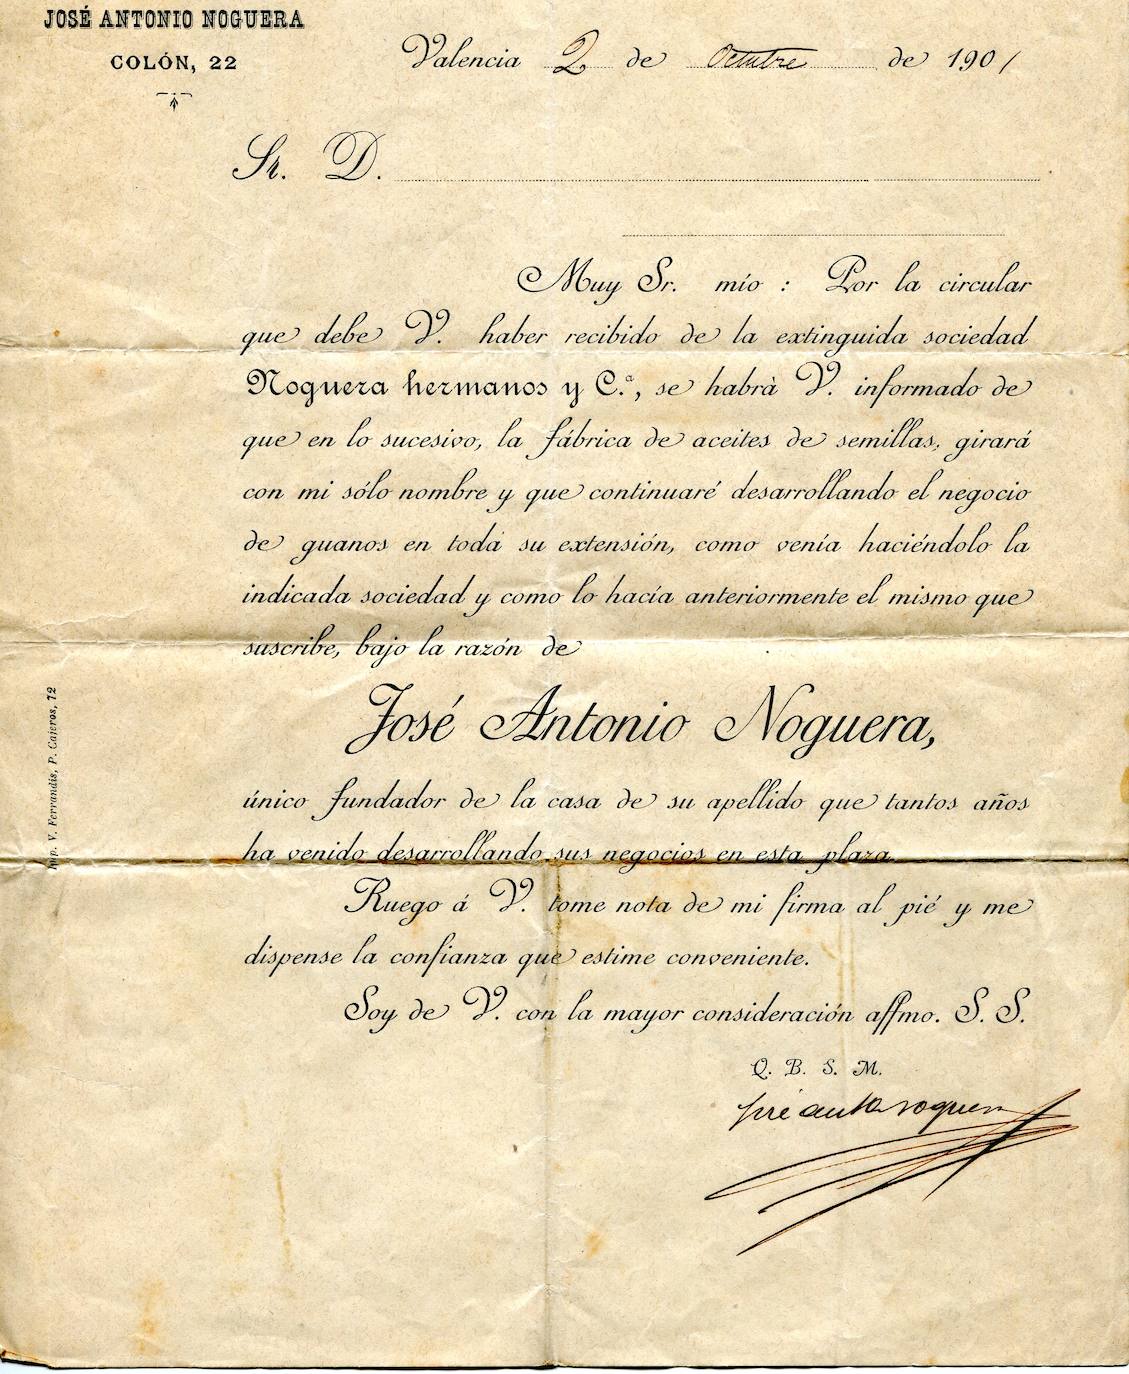 JOSÉ ANTONIO NOGUERA
COLÓN, 22
Valencia 2 de Octubre de 1901
Sr. D.
Muy Sr. mío : Por la circular
que debe V. haber recibido de la extinguida sociedad
Noguera hermanos y C.ª, se habrà V. informado de
que en lo sucesivo, la fábrica de aceites de semillas, girará
con mi sólo nombre y que continuaré desarrollando el negocio
de guanos en toda su extensión, como venía haciéndolo la
indicada sociedad y como lo hacía anteriormente el mismo que
suscribe, bajo la razón de
José Antonio Noguera,
único fundador de la casa de su apellido que tantos años
ha venido desarrollando sus negocios en esta plaza.
Ruego á V. tome nota de mi firma al pié y me
dispense la confianza que estime conveniente.
Soy de V. con la mayor consideración affmo. S. S.
Q. B. S. M.
José Anto Noguera
Imp. V. Ferrandis, P. Cajeros, 12